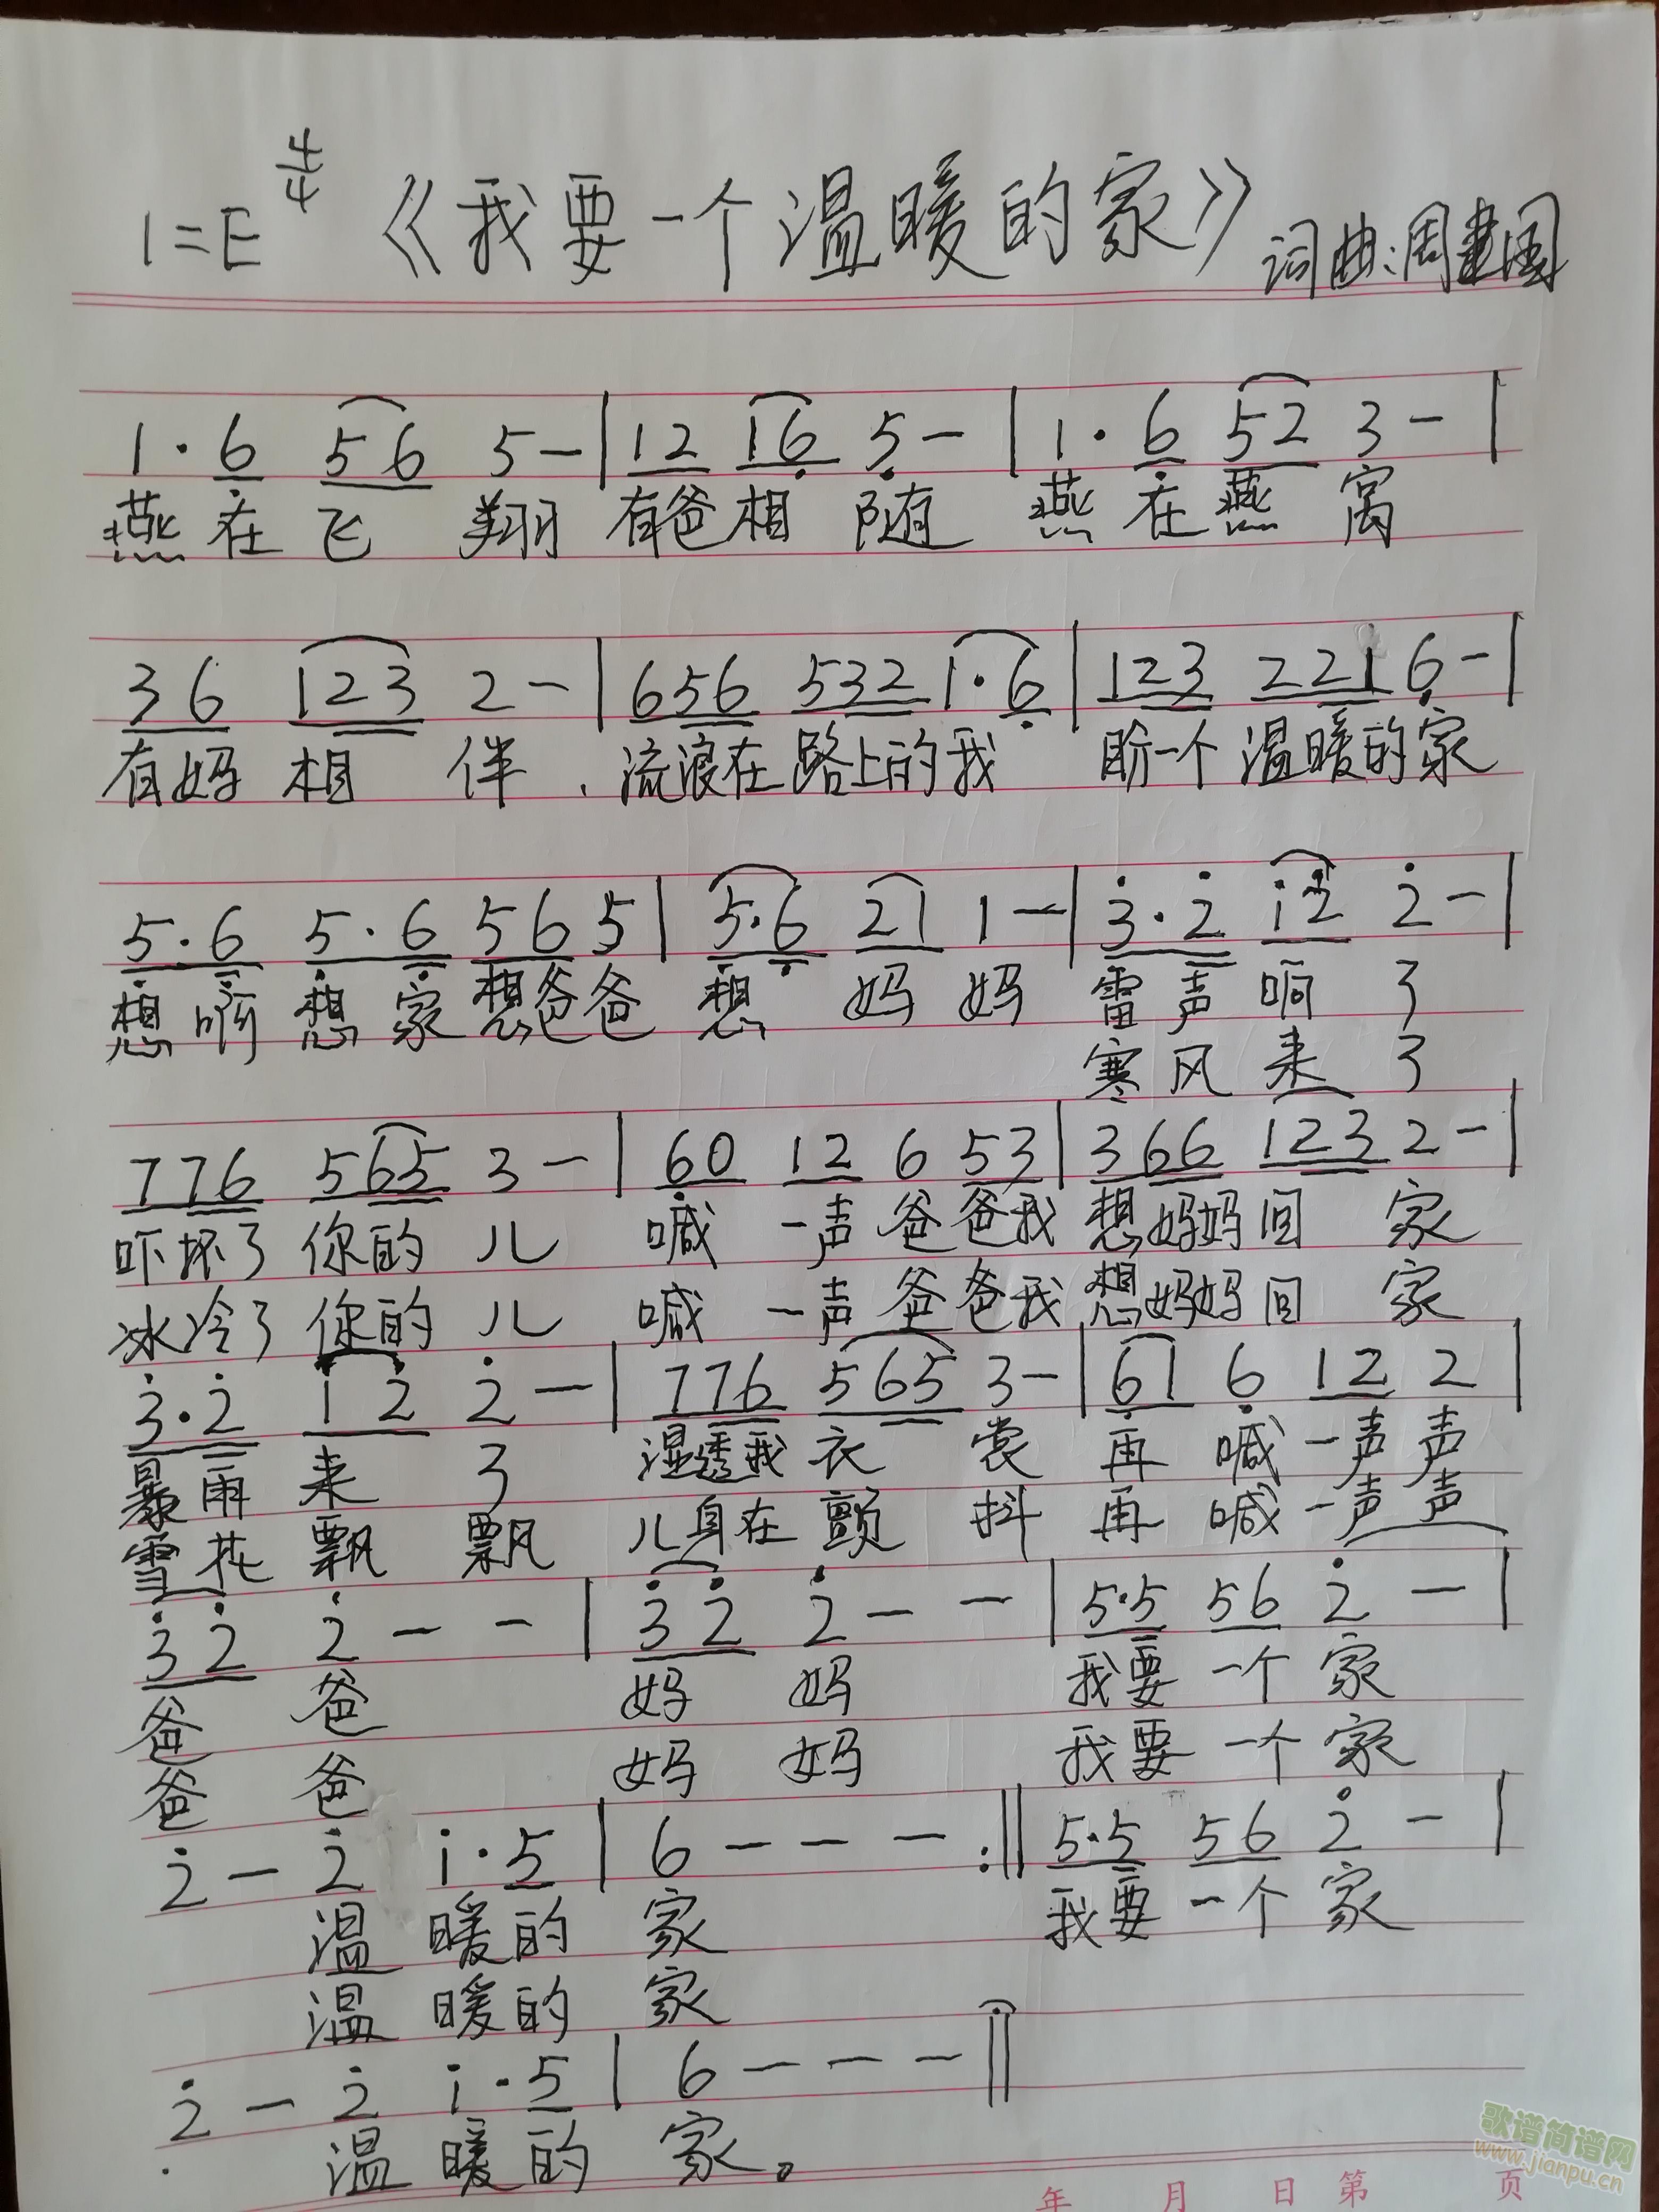 1=E 4/4 《我要一个温暖的家》 词曲:周建国
1·6 56 5-|12 16 5-|1·6 52 3-|
燕在飞 翔 有爸相 随 燕在燕 窝
36 123 2-|656 532 1·6|123 2216-|
有妈相 伴. 流浪在路上的我 盼一个温暖的家
5·6 5·6 56 5|5·6 21 1-|3·2 12 2-|
想啊想家想爸爸 想 妈 妈 雷声响 了
寒风来 了
776 565 3-|60 12 6 53|366 123 2-|
吓坏了你的儿 喊 一声爸爸我想妈妈回 家
冰冷了你的儿 喊 一声爸爸我想妈妈回 家
3·2 12 2-|776 565 3-|61 6 12 2|
暴雨来 了 湿透我衣 裳 再 喊一声声
雪花飘 飘 儿身在颤 抖 再 喊一声声
32 2--|32 2--|5·5 56 2-|
爸 爸 妈 妈 我要一个家
爸 爸 妈 妈 我要一个家
2-2 1·5|6---:‖5·5 56 2-|
温 暖的 家 我要一个家
温 暖的 家
2-2 1·5|6---‖
温 暖的 家。
歌谱简谱网
www.jianpu.cn
年 月 日 第 页